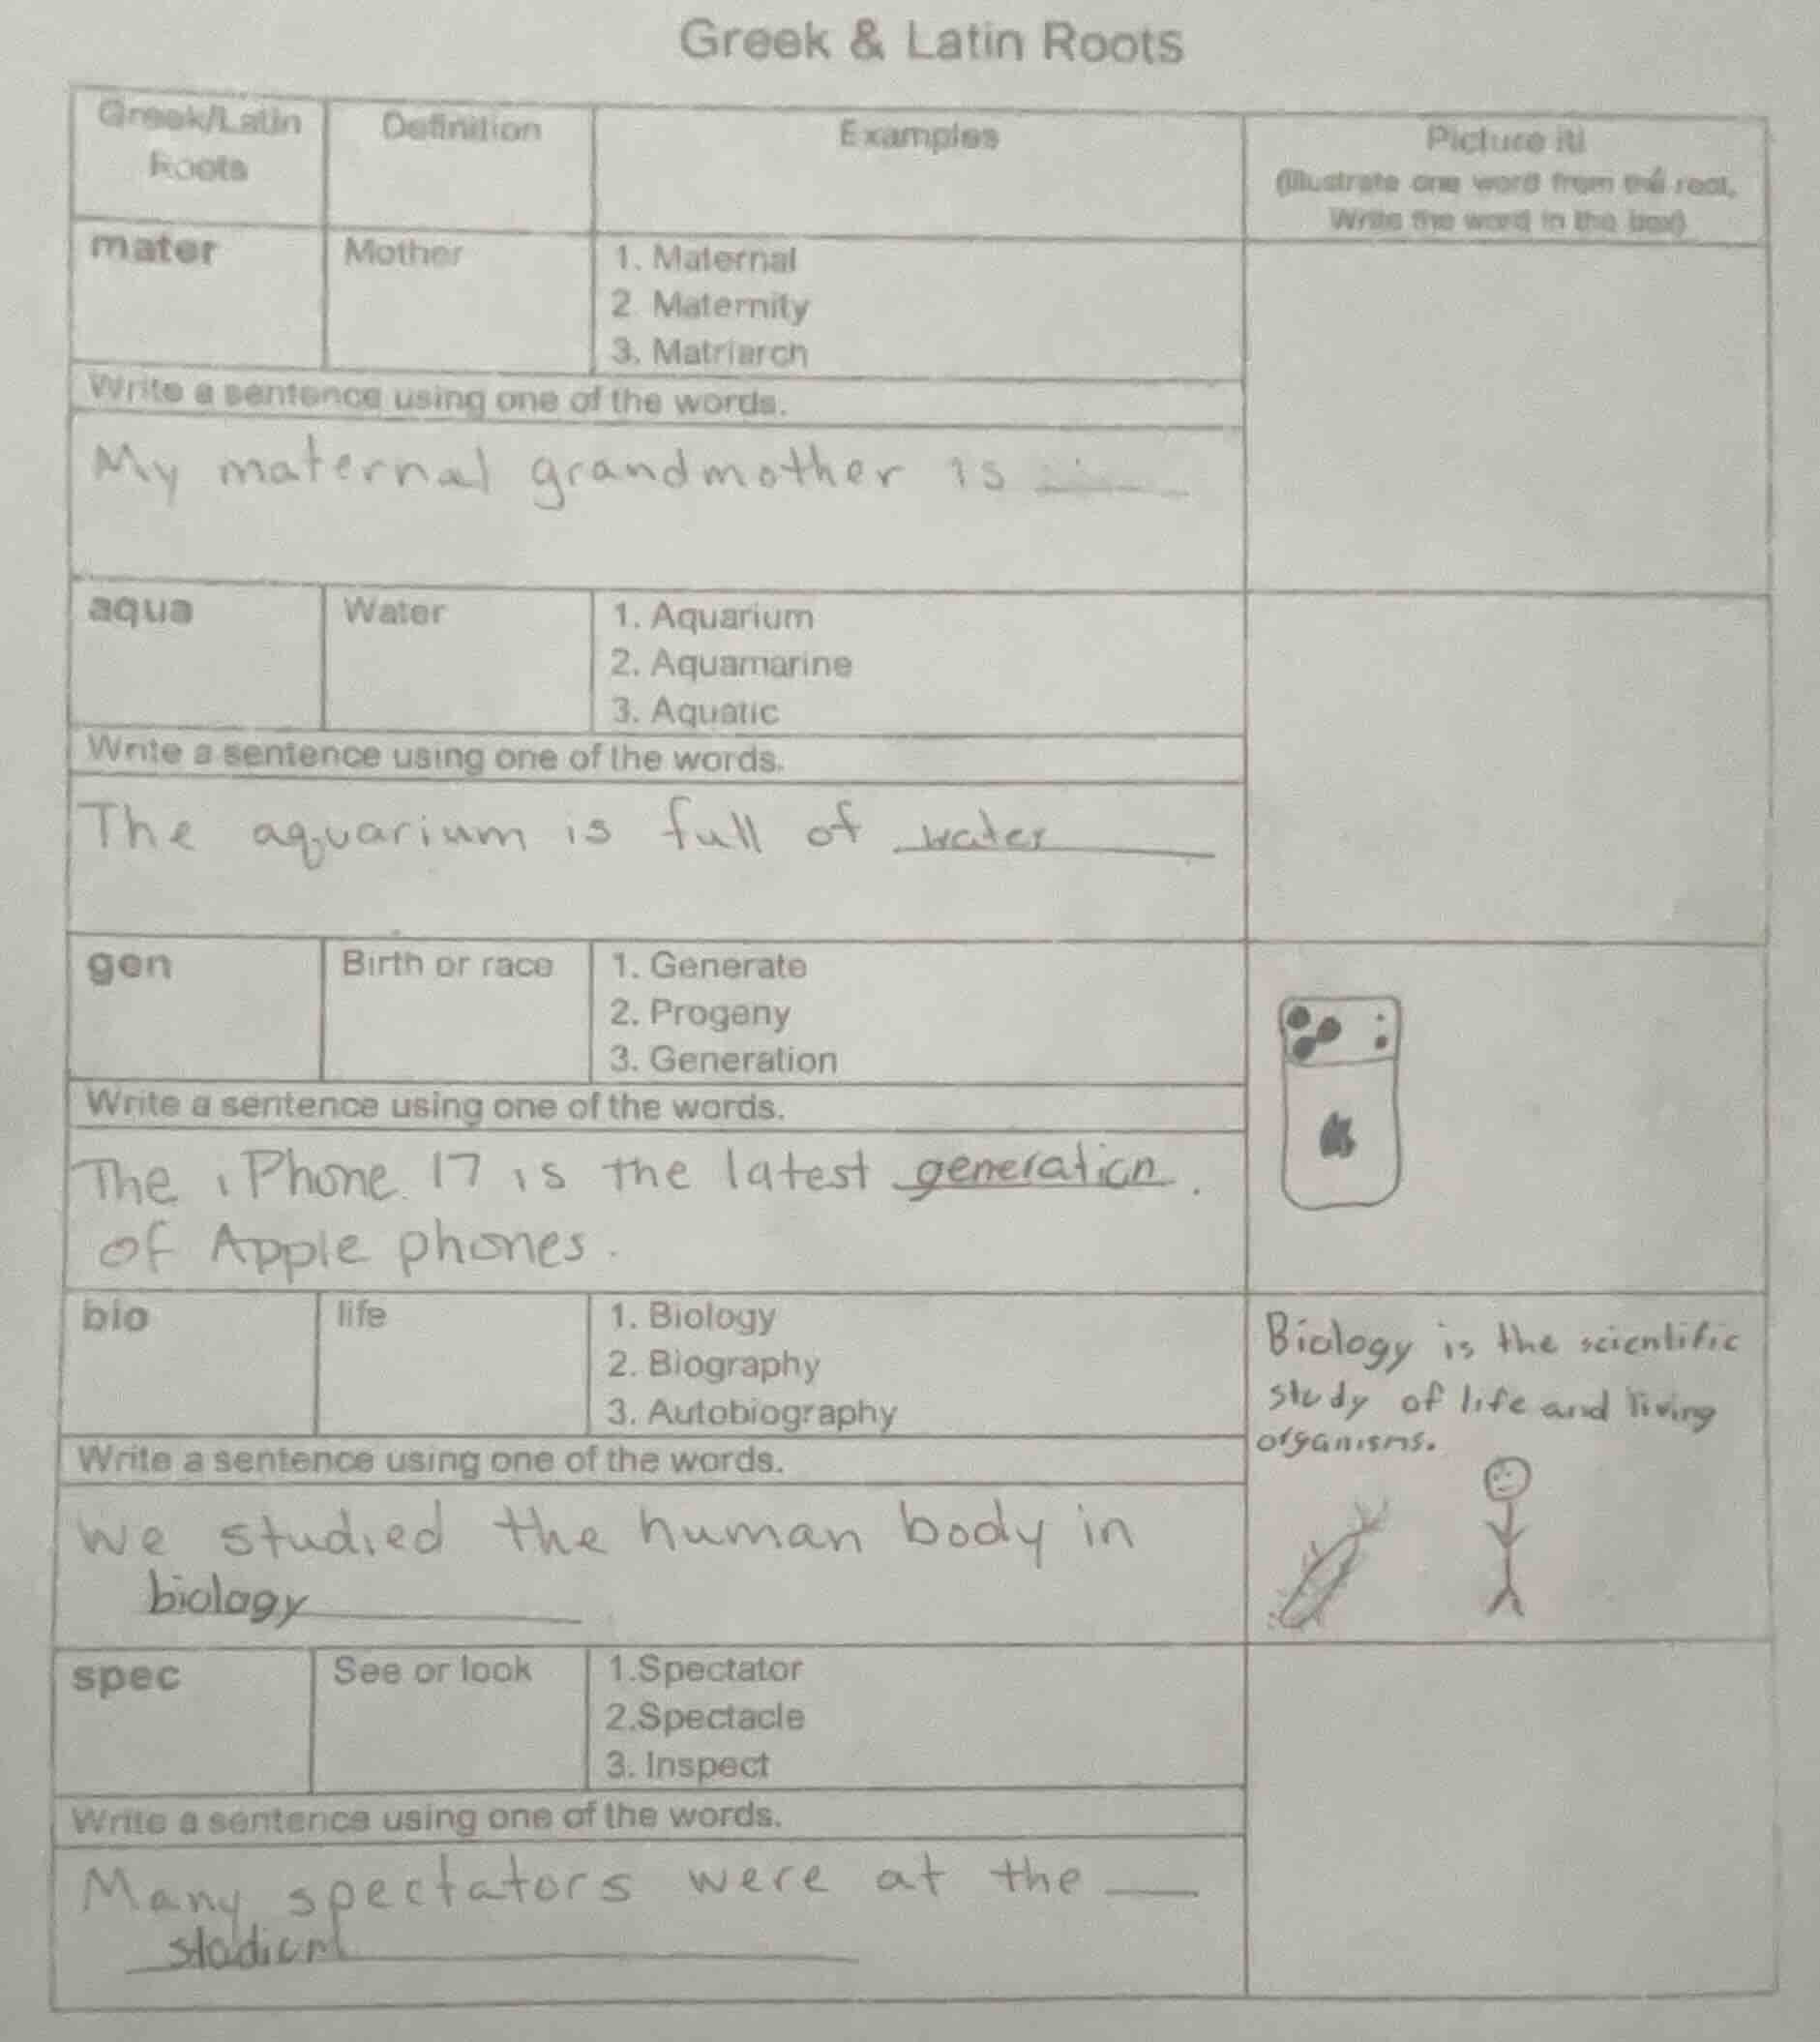 Greek & Latin Roots
Greek/Latin Roots
Definition
Examples
Picture it!
(Illustrate one word from the root.
Write the word in the box)
mater
Mother
1. Maternal
2. Maternity
3. Matriarch
Write a sentence using one of the words.
My maternal grandmother is
aqua
Water
1. Aquarium
2. Aquamarine
3. Aquatic
Write a sentence using one of the words.
The aquarium is full of water
gen
Birth or race
1. Generate
2. Progeny
3. Generation
Write a sentence using one of the words.
The iPhone 17 is the latest generation.
of Apple phones.
bio
life
1. Biology
2. Biography
3. Autobiography
Biology is the scientific
study of life and living
organisms.
Write a sentence using one of the words.
We studied the human body in
biology
spec
See or look
1.Spectator
2.Spectacle
3. Inspect
Write a sentence using one of the words.
Many spectators were at the